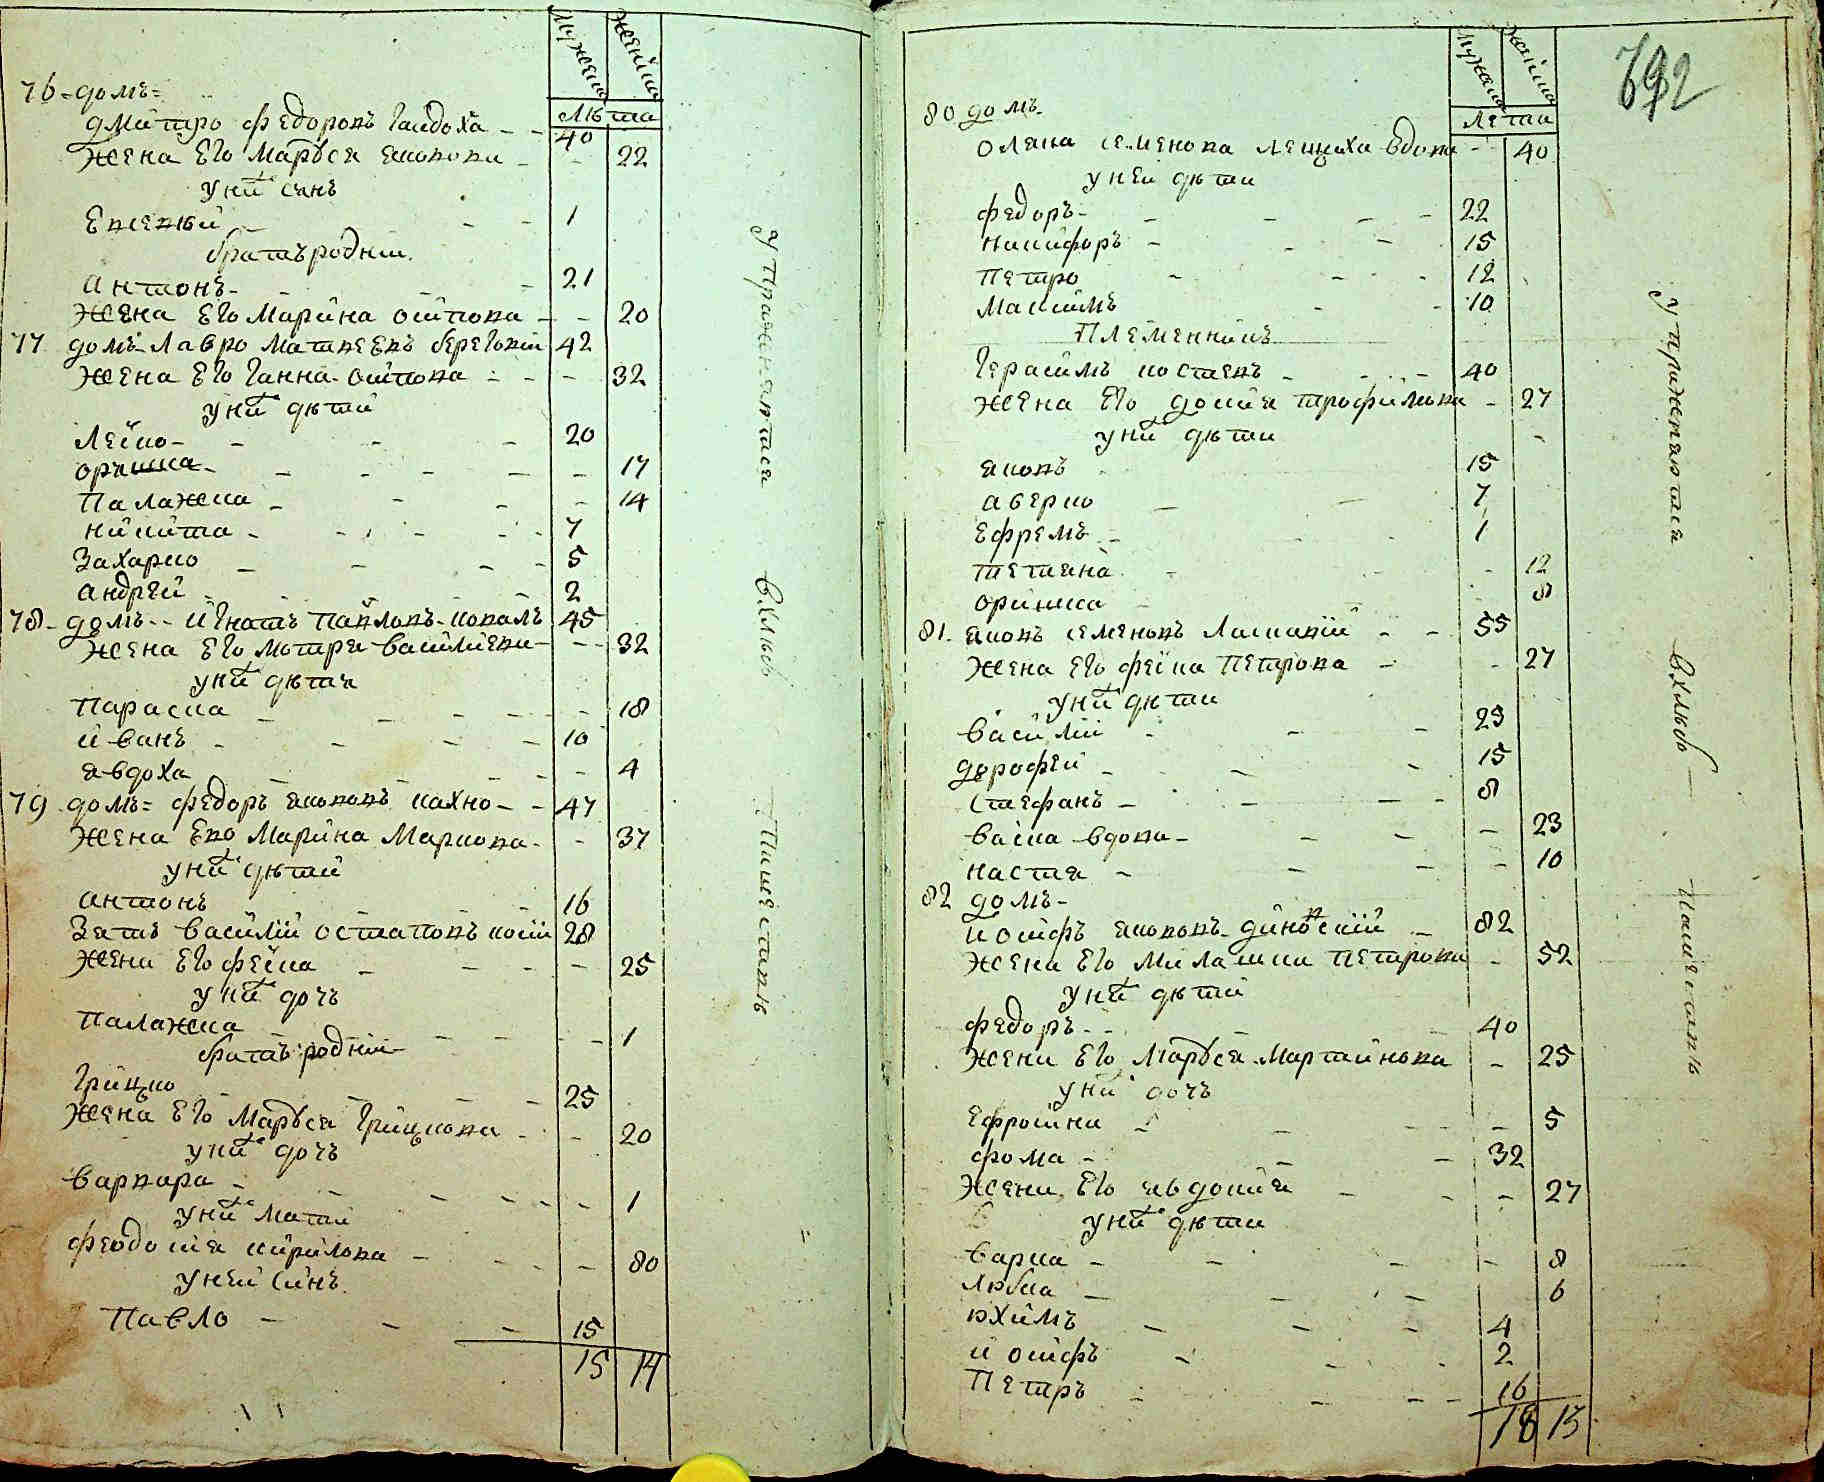 Мужеска Женска
лѣта
76 - домъ =
Дмитро Федоровъ Гандоха - - 40
Жена Его Маруся Яковова - - 22
У них сынъ
Евсевий - - 1
братъ роднии
Антонъ - - 21
Жена Его Марина Осипова - - 20
77 домъ - Лавро Матвеевъ береговии 42
Жена Его Ганна Осипова - - 32
У них дѣти
Лейко - - 20
Оришка - - 17
Палажка - - 14
Никита - - 7
Захарко - - 5
Андрей - 2
78 - домъ - - Игнатъ Павловъ коваль 45
Жена Его Мотря Василиева - - 32
У них дѣти
Параска - - 18
Иванъ - - 10
Явдоха - - 4
79 домъ = Федоръ Якововъ Кахно - - 47
Жена Его Марина Маркова - - 37
У них дѣти
Антонъ - 16
Зять Василий Остаповъ 28
Жена Его Фейка - - 25
У них дочь
Палажка - - 1
братъ роднии
Грицко - - 25
Жена Его Маруся Грицкова - - 20
У них дочь
Варвара - - 1
У них мати
Феодосия Кирилова - - 80
У ней синъ
Павло - - 15
15 14
Упражняются в хлѣбопашествѣ
692
Мужеска Женска
Лета
80 домъ
Олена Семенова вдова - 40
У ней дѣти
Федоръ - - 22
Никифоръ - - 15
Петро - - 12
Максимъ - - 10
Племенникъ
Герасимъ Костевъ - - 40
Жена Его Докия Трофимова - 27
У них дѣти
Яковъ 15
Аверко - - 7
Ефремъ - 1
Тетяна - - 12
Оришка 8
81 - Яковъ Семеновъ - - 55
Жена Его Фейка Петрова - - 27
У них дѣти
Василий - - 25
Дорофей - - 15
Стефанъ - - 8
Васка вдова - - 23
Настя - - 10
82 домъ -
Иосифъ Якововъ - 82
Жена Его Милашка Петрова - 52
У них дѣти
Федоръ - - 40
Жена Его Маруся Мартинова - 25
У них дочь
Ефросина - - 5
Фома - - 32
Жена Его Явдокия - - 27
У них дѣти
Варка - - 8
Любка - - 6
Юхимъ - - 4
Иосифъ - - 2
Петръ - - 16
18 13
Упражняются в хлѣбопашествѣ